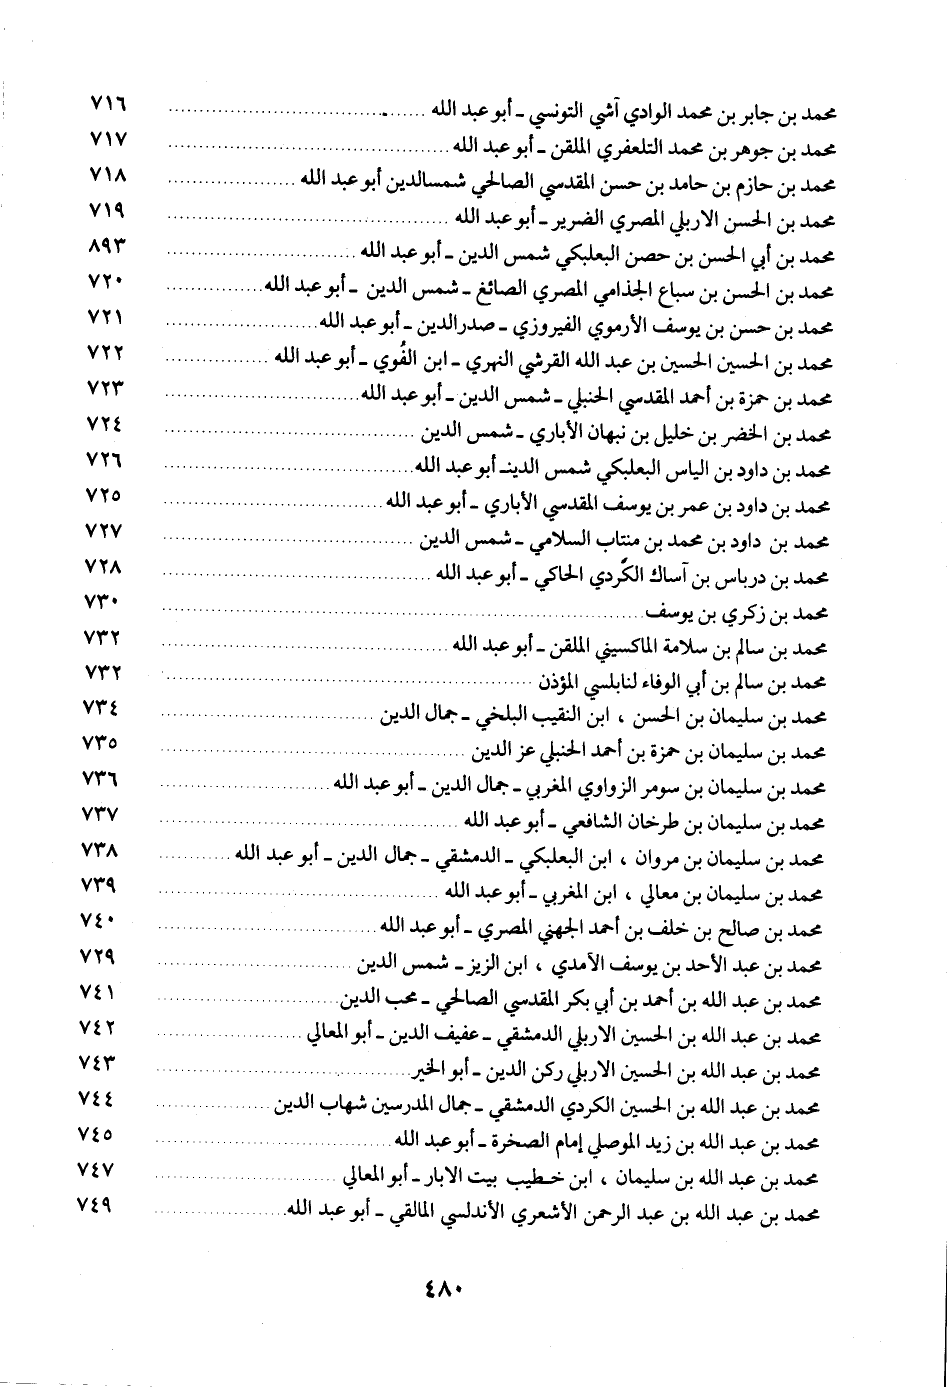 محمد بن جابر بن محمد الوادي آشي التونسي ـ أبو عبد الله ........ ٧١٦
محمد بن جوهر بن محمد التلعفري الملقن ـ أبو عبد الله ........ ٧١٧
محمد بن حازم بن حامد بن حسن المقدسي الصالحي شمسالدين أبو عبد الله ........ ٧١٨
محمد بن الحسن الاربلي المصري الضرير ـ أبو عبد الله ........ ٧١٩
محمد بن أبي الحسن بن حصن البعلبكي شمس الدين ـ أبو عبد الله ........ ٨٩٣
محمد بن الحسن بن سباع الجذامي المصري الصائغ ـ شمس الدين ـ أبو عبد الله ........ ٧٢٠
محمد بن حسن بن يوسف الأرموي الفيروزي ـ صدرالدين ـ أبو عبد الله ........ ٧٢١
محمد بن الحسين الحسين بن عبد الله القرشي النهري ـ ابن الفُوي ـ أبو عبد الله ........ ٧٢٢
محمد بن حمزة بن أحمد المقدسي الحنبلي ـ شمس الدين ـ أبو عبد الله ........ ٧٢٣
محمد بن الخضر بن خليل بن نبهان الأباري ـ شمس الدين ........ ٧٢٤
محمد بن داود بن الياس البعلبكي شمس الدينـ أبو عبد الله ........ ٧٢٦
محمد بن داود بن عمر بن يوسف المقدسي الأباري ـ أبو عبد الله ........ ٧٢٥
محمد بن داود بن محمد بن منتاب السلامي ـ شمس الدين ........ ٧٢٧
محمد بن درباس بن آساك الكُردي الحاكي ـ أبو عبد الله ........ ٧٢٨
محمد بن زكري بن يوسف ........ ٧٣٠
محمد بن سالم بن سلامة الماكسيني الملقن ـ أبو عبد الله ........ ٧٣٢
محمد بن سالم بن أبي الوفاء لنابلسي المؤذن ........ ٧٣٢
محمد بن سليمان بن الحسن ، ابن النقيب البلخي ـ جمال الدين ........ ٧٣٤
محمد بن سليمان بن حمزة بن أحمد الحنبلي عز الدين ........ ٧٣٥
محمد بن سليمان بن سومر الزواوي المغربي ـ جمال الدين ـ أبو عبد الله ........ ٧٣٦
محمد بن سليمان بن طرخان الشافعي ـ أبو عبد الله ........ ٧٣٧
محمد بن سليمان بن مروان ، ابن البعلبكي ـ الدمشقي ـ جمال الدين ـ أبو عبد الله ........ ٧٣٨
محمد بن سليمان بن معالي ، ابن المغربي ـ أبو عبد الله ........ ٧٣٩
محمد بن صالح بن خلف بن أحمد الجهني المصري ـ أبو عبد الله ........ ٧٤٠
محمد بن عبد الأحد بن يوسف الآمدي ، ابن الزيز ـ شمس الدين ........ ٧٢٩
محمد بن عبد الله بن أحمد بن أبي بكر المقدسي الصالحي ـ محب الدين ........ ٧٤١
محمد بن عبد الله بن الحسين الاربلي الدمشقي ـ عفيف الدين ـ أبو المعالي ........ ٧٤٢
محمد بن عبد الله بن الحسين الاربلي ركن الدين ـ أبو الخير ........ ٧٤٣
محمد بن عبد الله بن الحسين الكردي الدمشقي ـ جمال المدرسين شهاب الدين ........ ٧٤٤
محمد بن عبد الله بن زيد الموصلي إمام الصخرة ـ أبو عبد الله ........ ٧٤٥
محمد بن عبد الله بن سليمان ، ابن خطيب بيت الابار ـ أبو المعالي ........ ٧٤٧
محمد بن عبد الله بن عبد الرحمن الأشعري الأندلسي المالقي ـ أبو عبد الله ........ ٧٤٩
٤٨٠